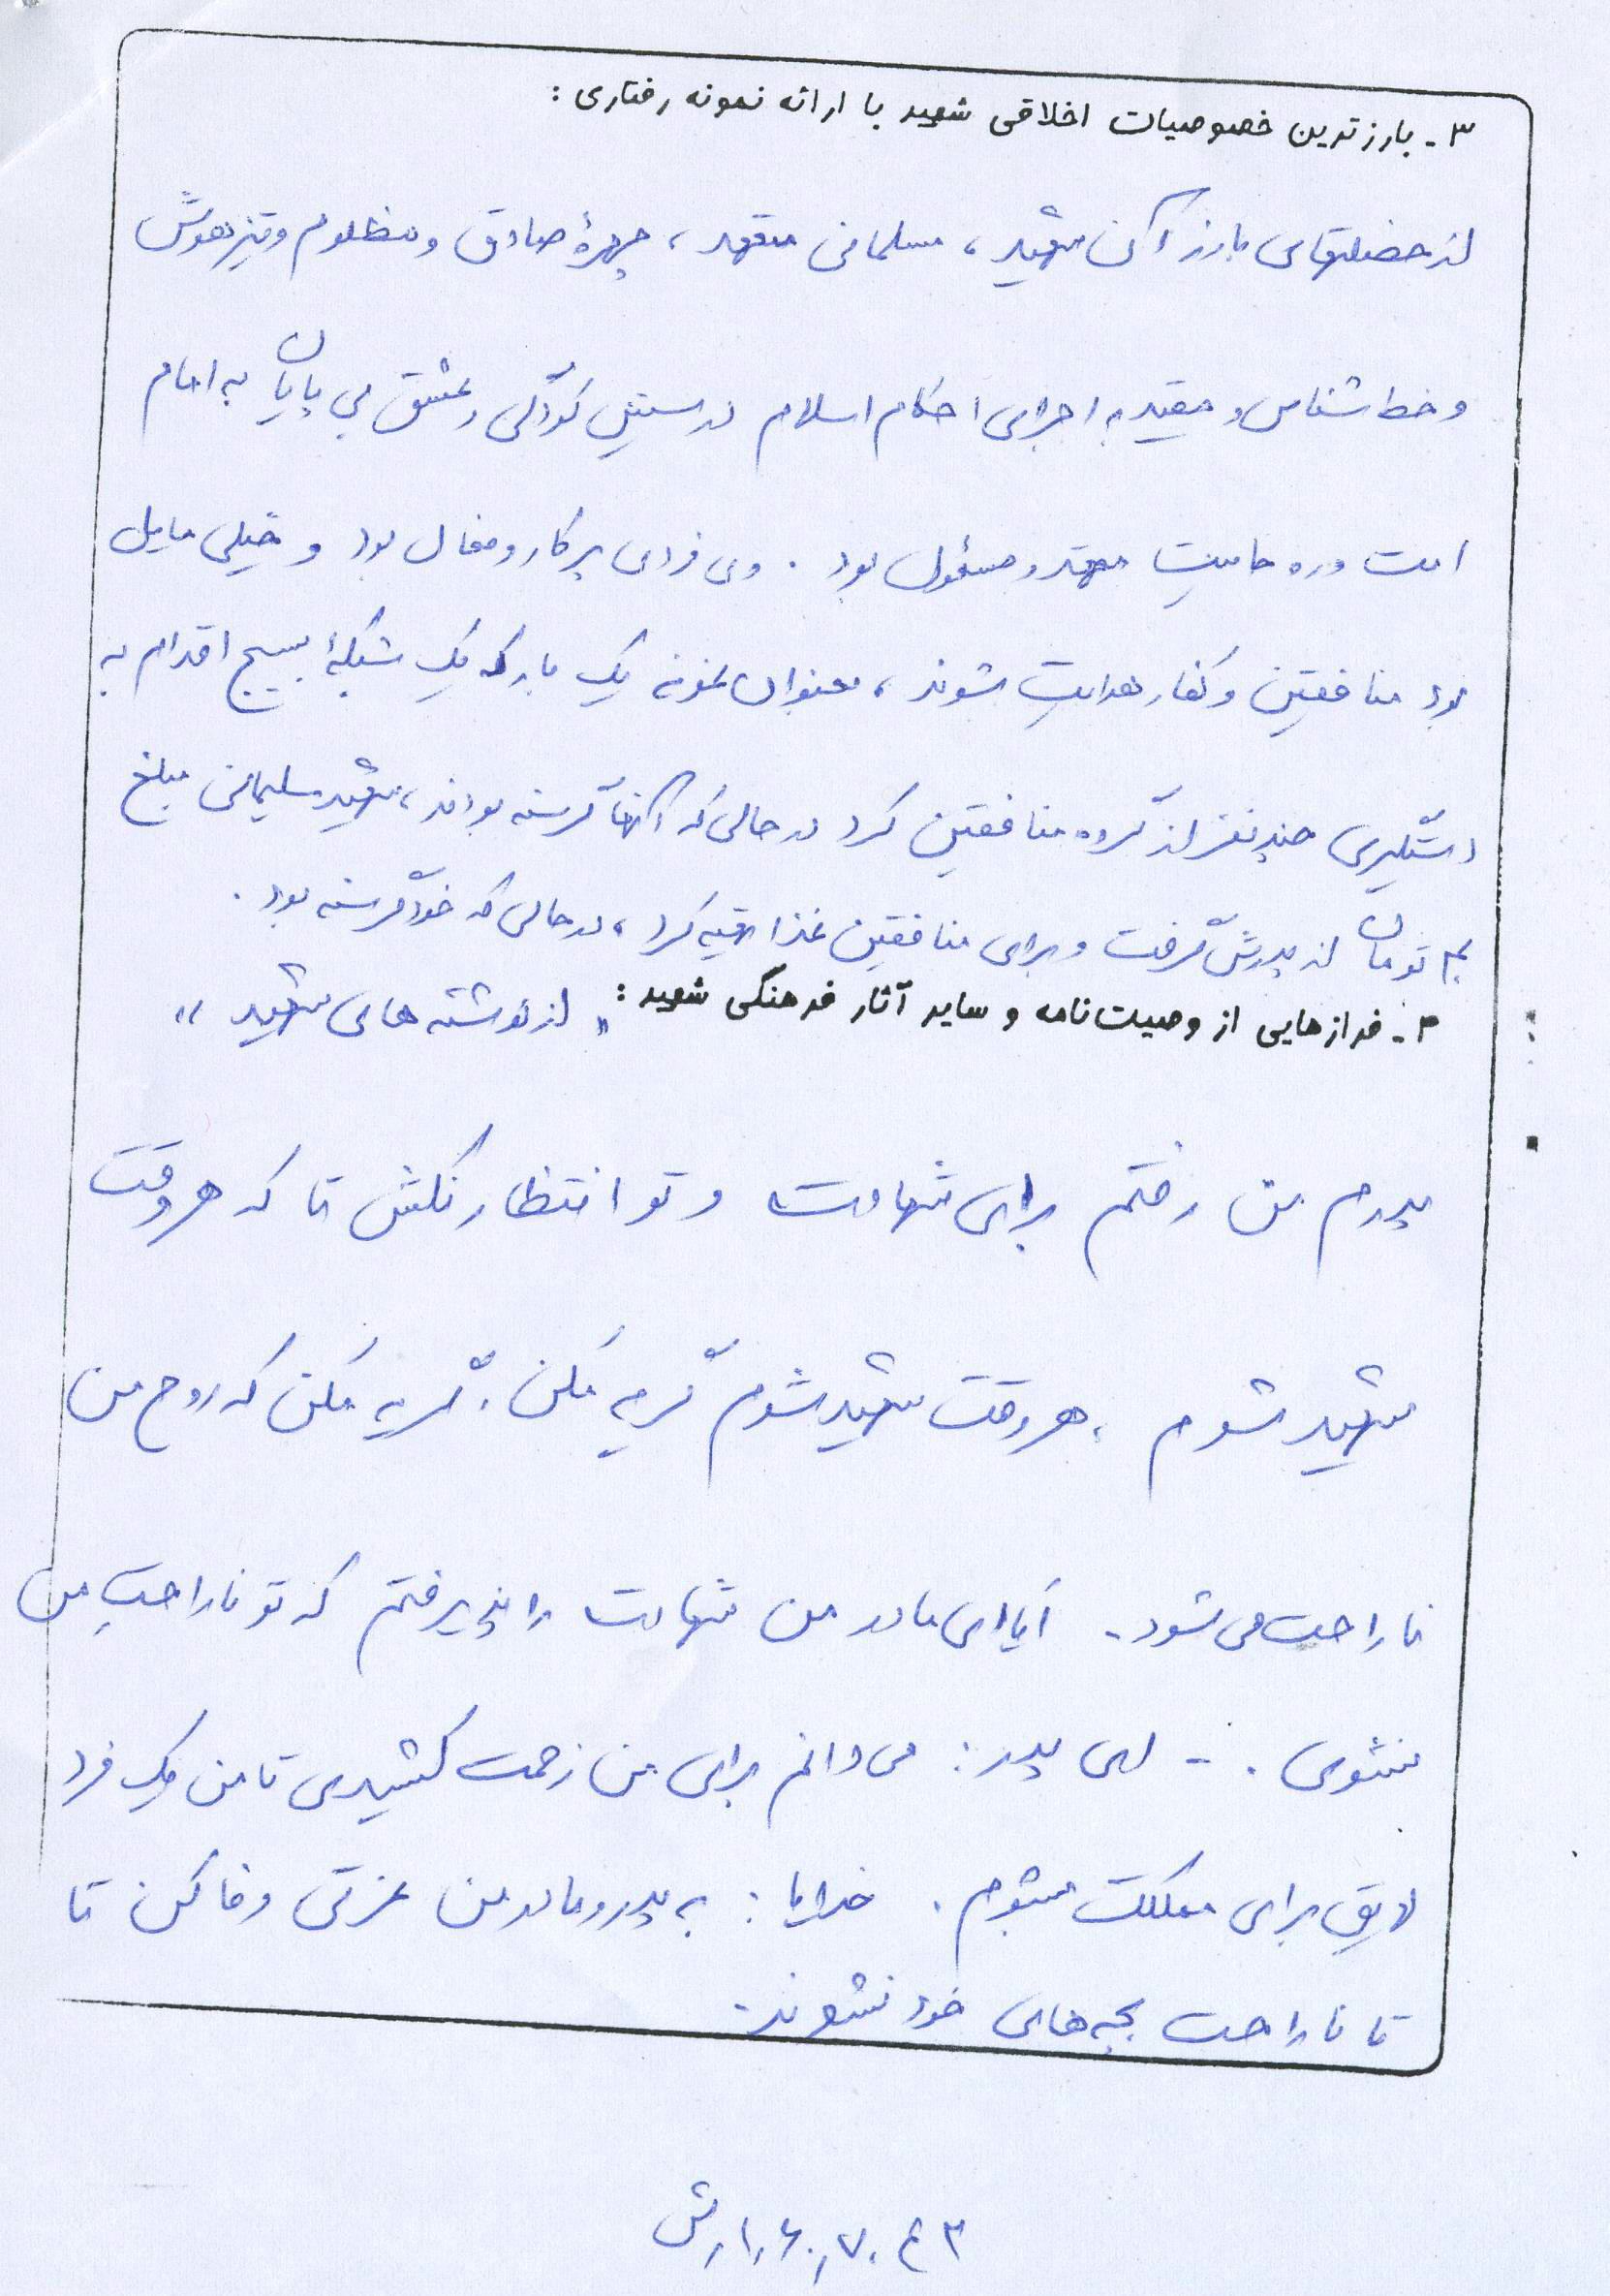 ۳- بارزترین خصوصیات اخلاقی شهید با ارائه نمونه رفتاری :
از خصلتهای بارز آن شهید ، مسلمانی متعهد ، چهرهٔ صادق و مظلوم و تیزهوش
و خط شناس و مقید به اجرای احکام اسلام در سنین کودکی و عشق بی پایان به امام
امت و روحانیت متعهد و مسئول بود . وی فردی پرکار و فعال بود و خیلی مایل
بود منافقین و کفار هدایت شوند ، بعنوان نمونه یک بار که یک شبکهٔ بسیج اقدام به
دستگیری چند نفر از گروه منافقین کرد در حالی که آنها گرسنه بودند ، شهید سلیمانی مبلغ
تومان از پدرش گرفت و برای منافقین غذا تهیه کرد ، در حالی که خود گرسنه بود .
۴- فرازهایی از وصیت نامه و سایر آثار فرهنگی شهید : « از نوشته های شهید »
پدرم من رفتم برای شهادت و تو انتظار نکش تا که هر وقت
شهید شوم ، هر وقت شهید شوم گریه مکن . گریه مکن که روح من
ناراحت می شود - آیا ای مادر من شهادت را پذیرفتم که تو ناراحت من
بشوی . - ای پدر : می دانم برای من زحمت کشیدی تا من یک فرد
لایق برای مملکت بشوم . خدایا : به پدر و مادر من عزتی وفا کن تا
تا ناراحت بچه های خود نشوند .